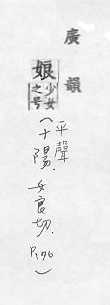 廣韻
娘少女之号
（平聲十陽．女良切．P.176）